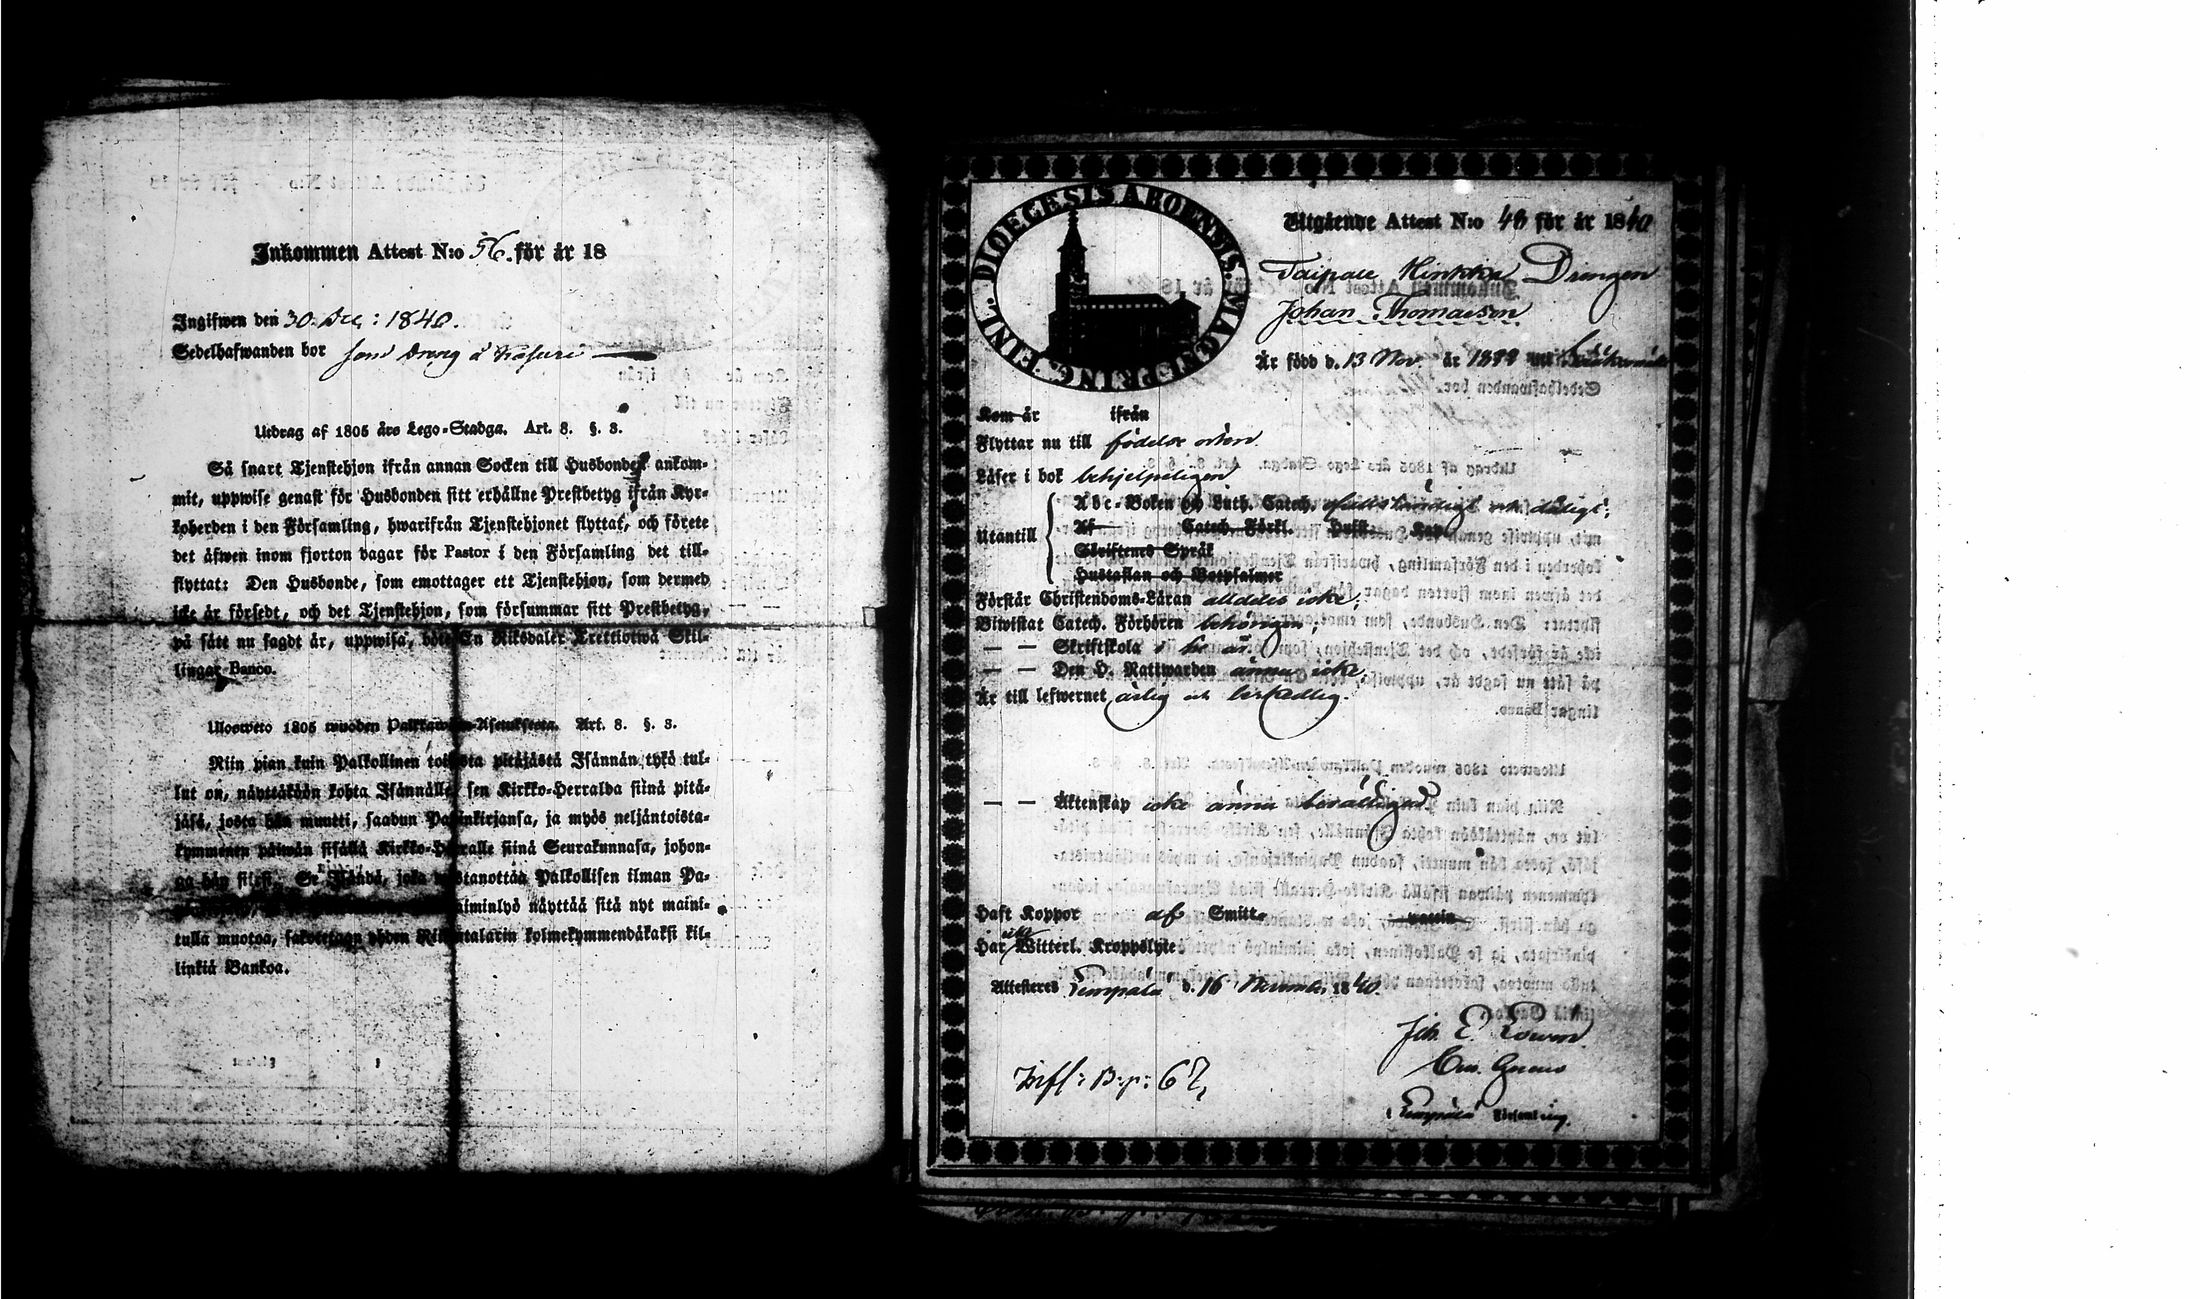 Inkommen Attest N:o 56. för år 18
Ingifwen den 30. Dec: 1840.
Sedelhafwanden bor som dräng å
Utdrag af 1805 års Lego-Stadga. Art. 8. §. 3.
Så snart Tjenstehjon ifrån annan Socken till Husbonden ankom-
mit, uppwise genast för Husbonden sitt erhållne Prestbetyg ifrån Kyr-
koherden i den Församling, hwarifrån Tjenstehjonet flyttat, och förete
det äfwen inom fjorton dagar för Pastor i den Församling det till-
flyttat: Den Husbonde, som emottager ett Tjenstehjon, som dermed
icke är försedt, och det Tjenstehjon, som försummar sitt Prestbetyg,
på sätt nu sagdt är, uppwisa, böte En Riksdaler Trettiotwå Skil-
lingar Banco.
Ulosweto 1805 wuoden Palkkawäen-Asetuksesta. Art. 8. §. 3.
Niin pian kuin Palkollinen toisesta pitäjästä Isännän tykö tul-
lut on, näyttäköön kohta Isännälle, sen Kirkko-Herralda siinä pitä-
jäsä, josta hän muutti, saadun Papinkirjansa, ja myös neljäntoista-
kymmenen päiwän sisällä Kirkko-Herralle siinä Seurakunnasa, johon-
ga hän siirsi. Se Isändä, joka wastanottaa Palkollisen ilman Pa-
laiminlyö näyttää sitä nyt maini-
tulla muotoa, sakotettagn yhden Riksitalarin kolmekymmendäkaksi kil-
linkiä Bankoa.
DIOECESIS ABOENSIS. MAGN. PRINC. FINL.
Utgående Attest N:o 48 för år 1840
Taipale Hinkka Drengen
Johan Thomasson
Är född d. 13 Nov. år
Kom år ifrån
Flyttar nu till födelse orten
Läser i bok behjelpeligen
Utantill
Abc-Boken och Luth. Catech. ofullständigt och dåligt;
Af Catech. Förkl. Hust.
Skriftenes Språk
Hustaflan och Botpsalmer
Förstår Christendoms-Läran alldeles icke;
Biwistat Catech. Förhören behörigen;
— — Skriftskola i år.
— — Den H. Nattwarden ännu icke,
Är till lefwernet ärlig och beskedlig.
— — Äktenskap icke ännu berättigad
Haft Koppor af Smitt.
Har icke Witterl. Kroppslyte
Attesteras Lempälä d. 16 November 1840.
Joh. E.
Infl: B: p: 67,
i Lempälä Församling.